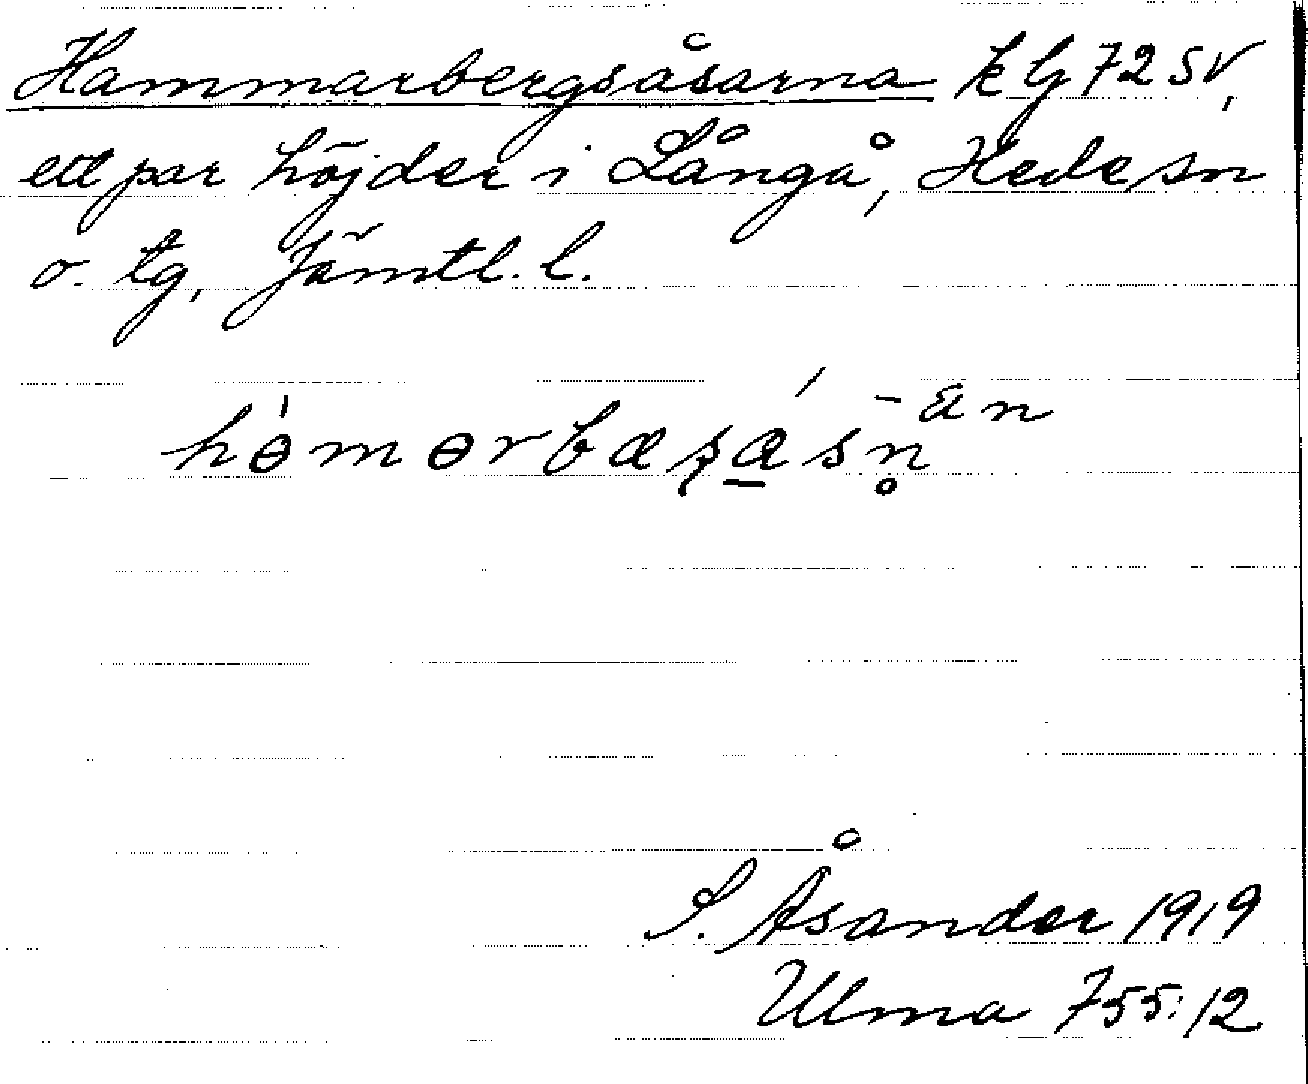 Hammarbergsåsarna klg 72 SV,
ett par höjder i Långå, Hede sn
o. tg, Jämtl. l.
hɵ̀mɵrbæʂǽ̲sn̥ -än
S. Åsander 1919
Ulma 755:12